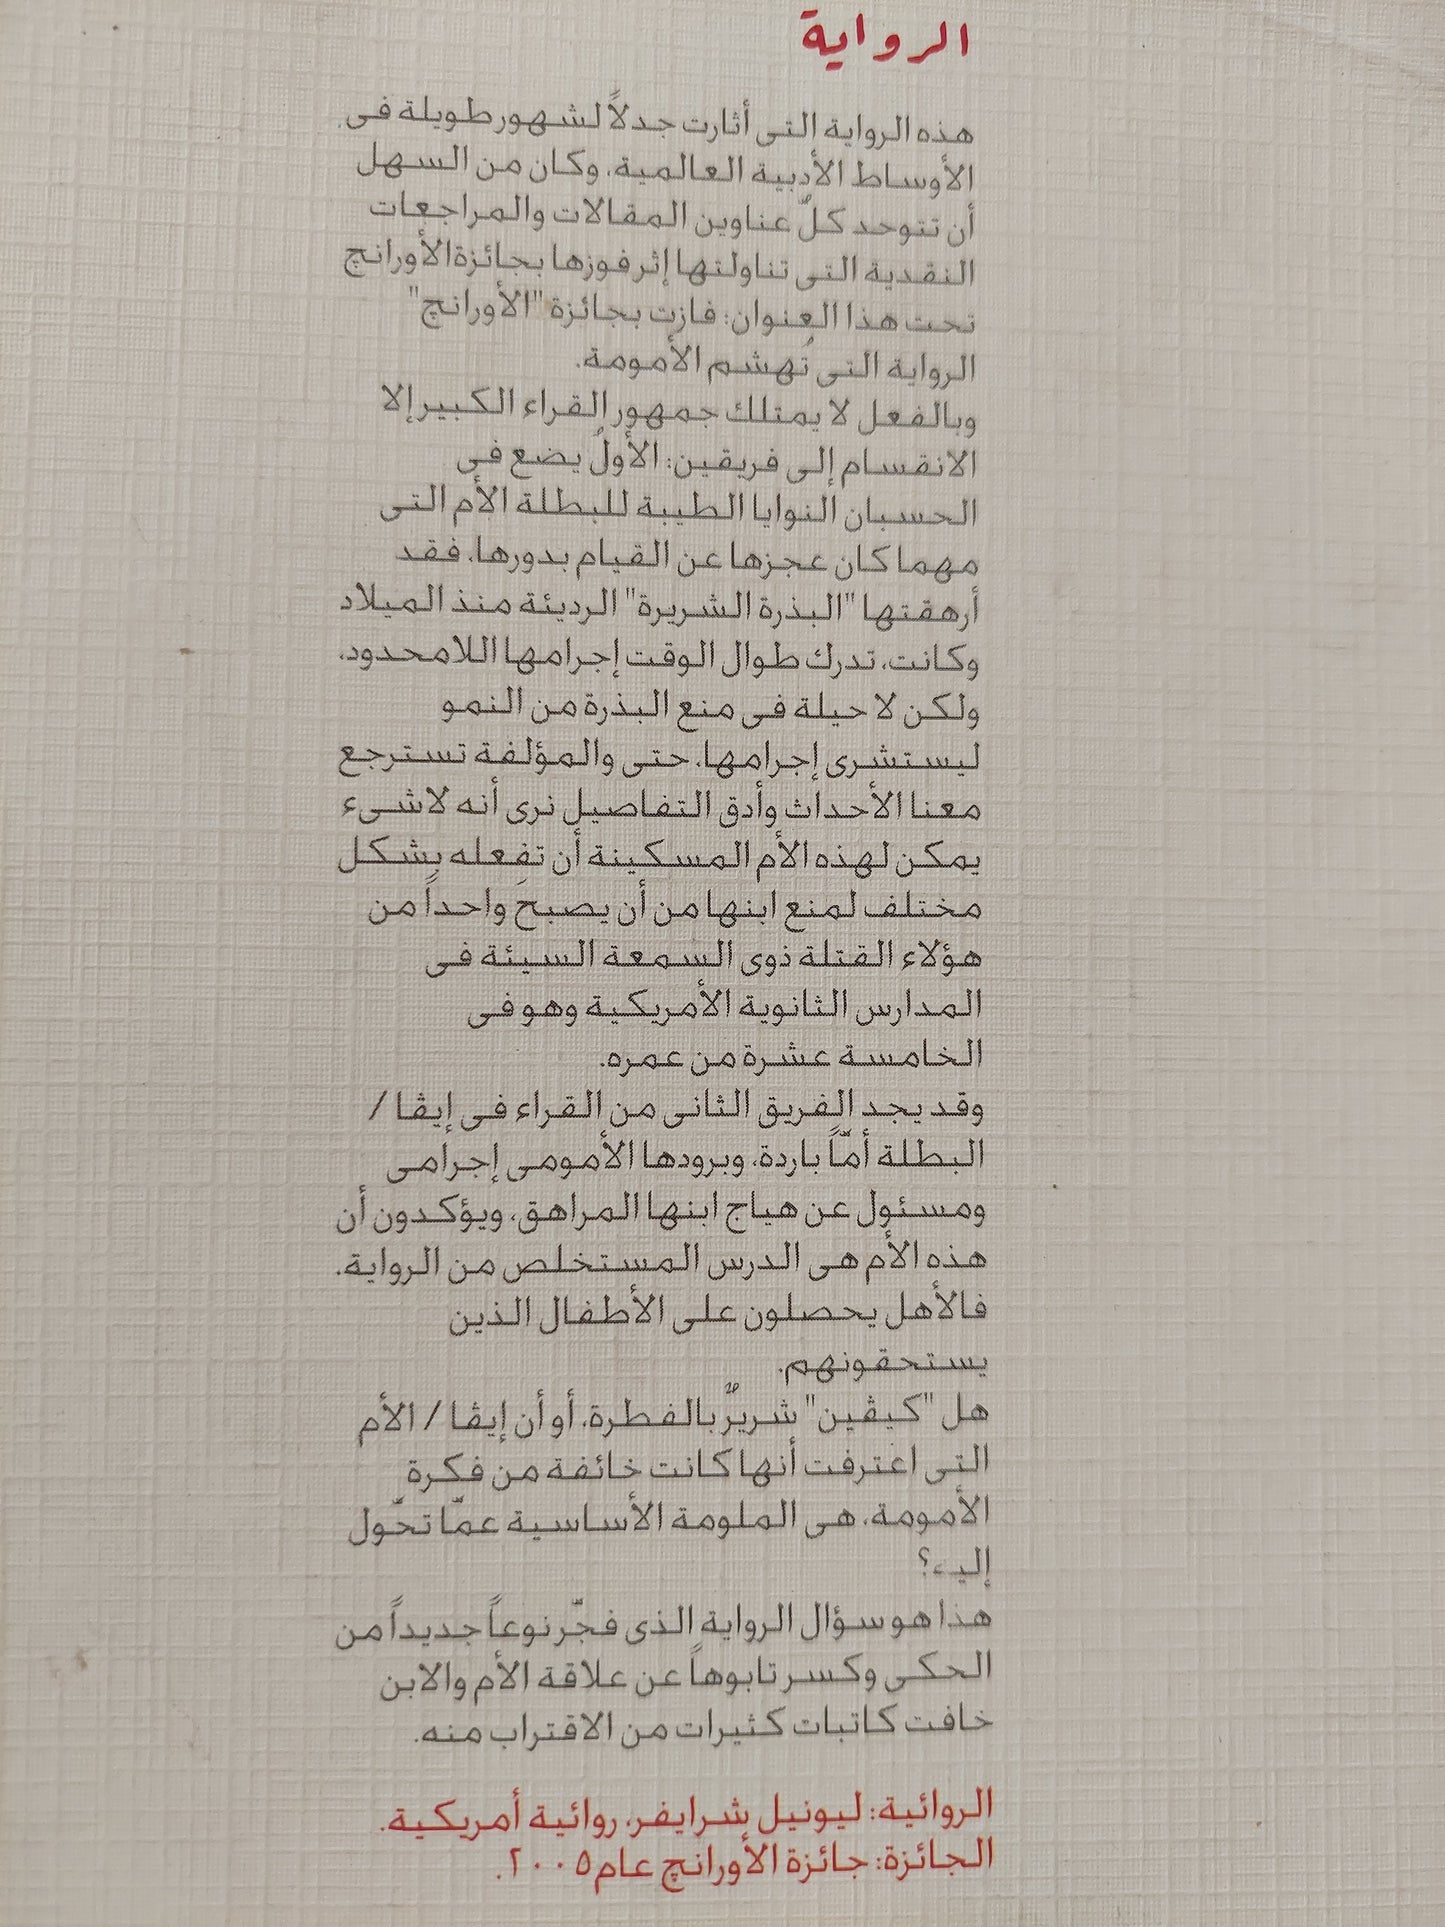 الرواية
هذه الرواية التى أثارت جدلاً لشهور طويلة فى
الأوساط الأدبية العالمية، وكان من السهل
أن تتوحد كلّ عناوين المقالات والمراجعات
النقدية التى تناولتها إثر فوزها بجائزة الأورانچ
تحت هذا العنوان: فازت بجائزة "الأورانچ"
الرواية التى تُهشم الأمومة.
وبالفعل لا يمتلك جمهور القراء الكبير إلا
الانقسام إلى فريقين: الأولُ يضع فى
الحسبان النوايا الطيبة للبطلة الأم التى
مهما كان عجزها عن القيام بدورها، فقد
أرهقتها "البذرة الشريرة" الرديئة منذ الميلاد
وكانت، تدرك طوال الوقت إجرامها اللامحدود،
ولكن لا حيلة فى منع البذرة من النمو
ليستشرى إجرامها، حتى والمؤلفة تسترجع
معنا الأحداث وأدق التفاصيل نرى أنه لاشىء
يمكن لهذه الأم المسكينة أن تفعله بشكل
مختلف لمنع ابنها من أن يصبحَ واحداً من
هؤلاء القتلة ذوى السمعة السيئة فى
المدارس الثانوية الأمريكية وهو فى
الخامسة عشرة من عمره.
وقد يجد الفريق الثانى من القراء فى إيڤا /
البطلة أمّاً باردة، وبرودها الأمومى إجرامى
ومسئول عن هياج ابنها المراهق، ويؤكدون أن
هذه الأم هى الدرس المستخلص من الرواية.
فالأهل يحصلون على الأطفال الذين
يستحقونهم.
هل "كيڤين" شريرٌ بالفطرة، أو أن إيڤا / الأم
التى اعترفت أنها كانت خائفة من فكرة
الأمومة، هى الملومة الأساسية عمّا تحّول
إليه؟
هذا هو سؤال الرواية الذى فجّر نوعاً جديداً من
الحكى وكسر تابوهاً عن علاقة الأم والابن
خافت كاتبات كثيرات من الاقتراب منه.
الروائية: ليونيل شرايفر، روائية أمريكية.
الجائزة: جائزة الأورانچ عام ٢٠٠٥.